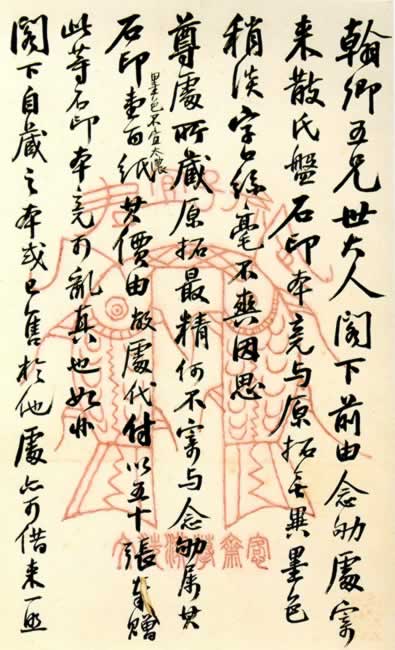 翰卿五兄世大人閣下前由念劬處寄
来散氏盤石印本竟与原拓無異墨色
稍淡字口絲毫不爽因思
尊處所藏原拓最精何不寄与念劬属其
墨色不宜太濃
石印壹百紙其價由敝處代付以五十張奉贈
此等石印本竟可亂真也如非
閣下自藏之本或已售於他處亦可借来一照